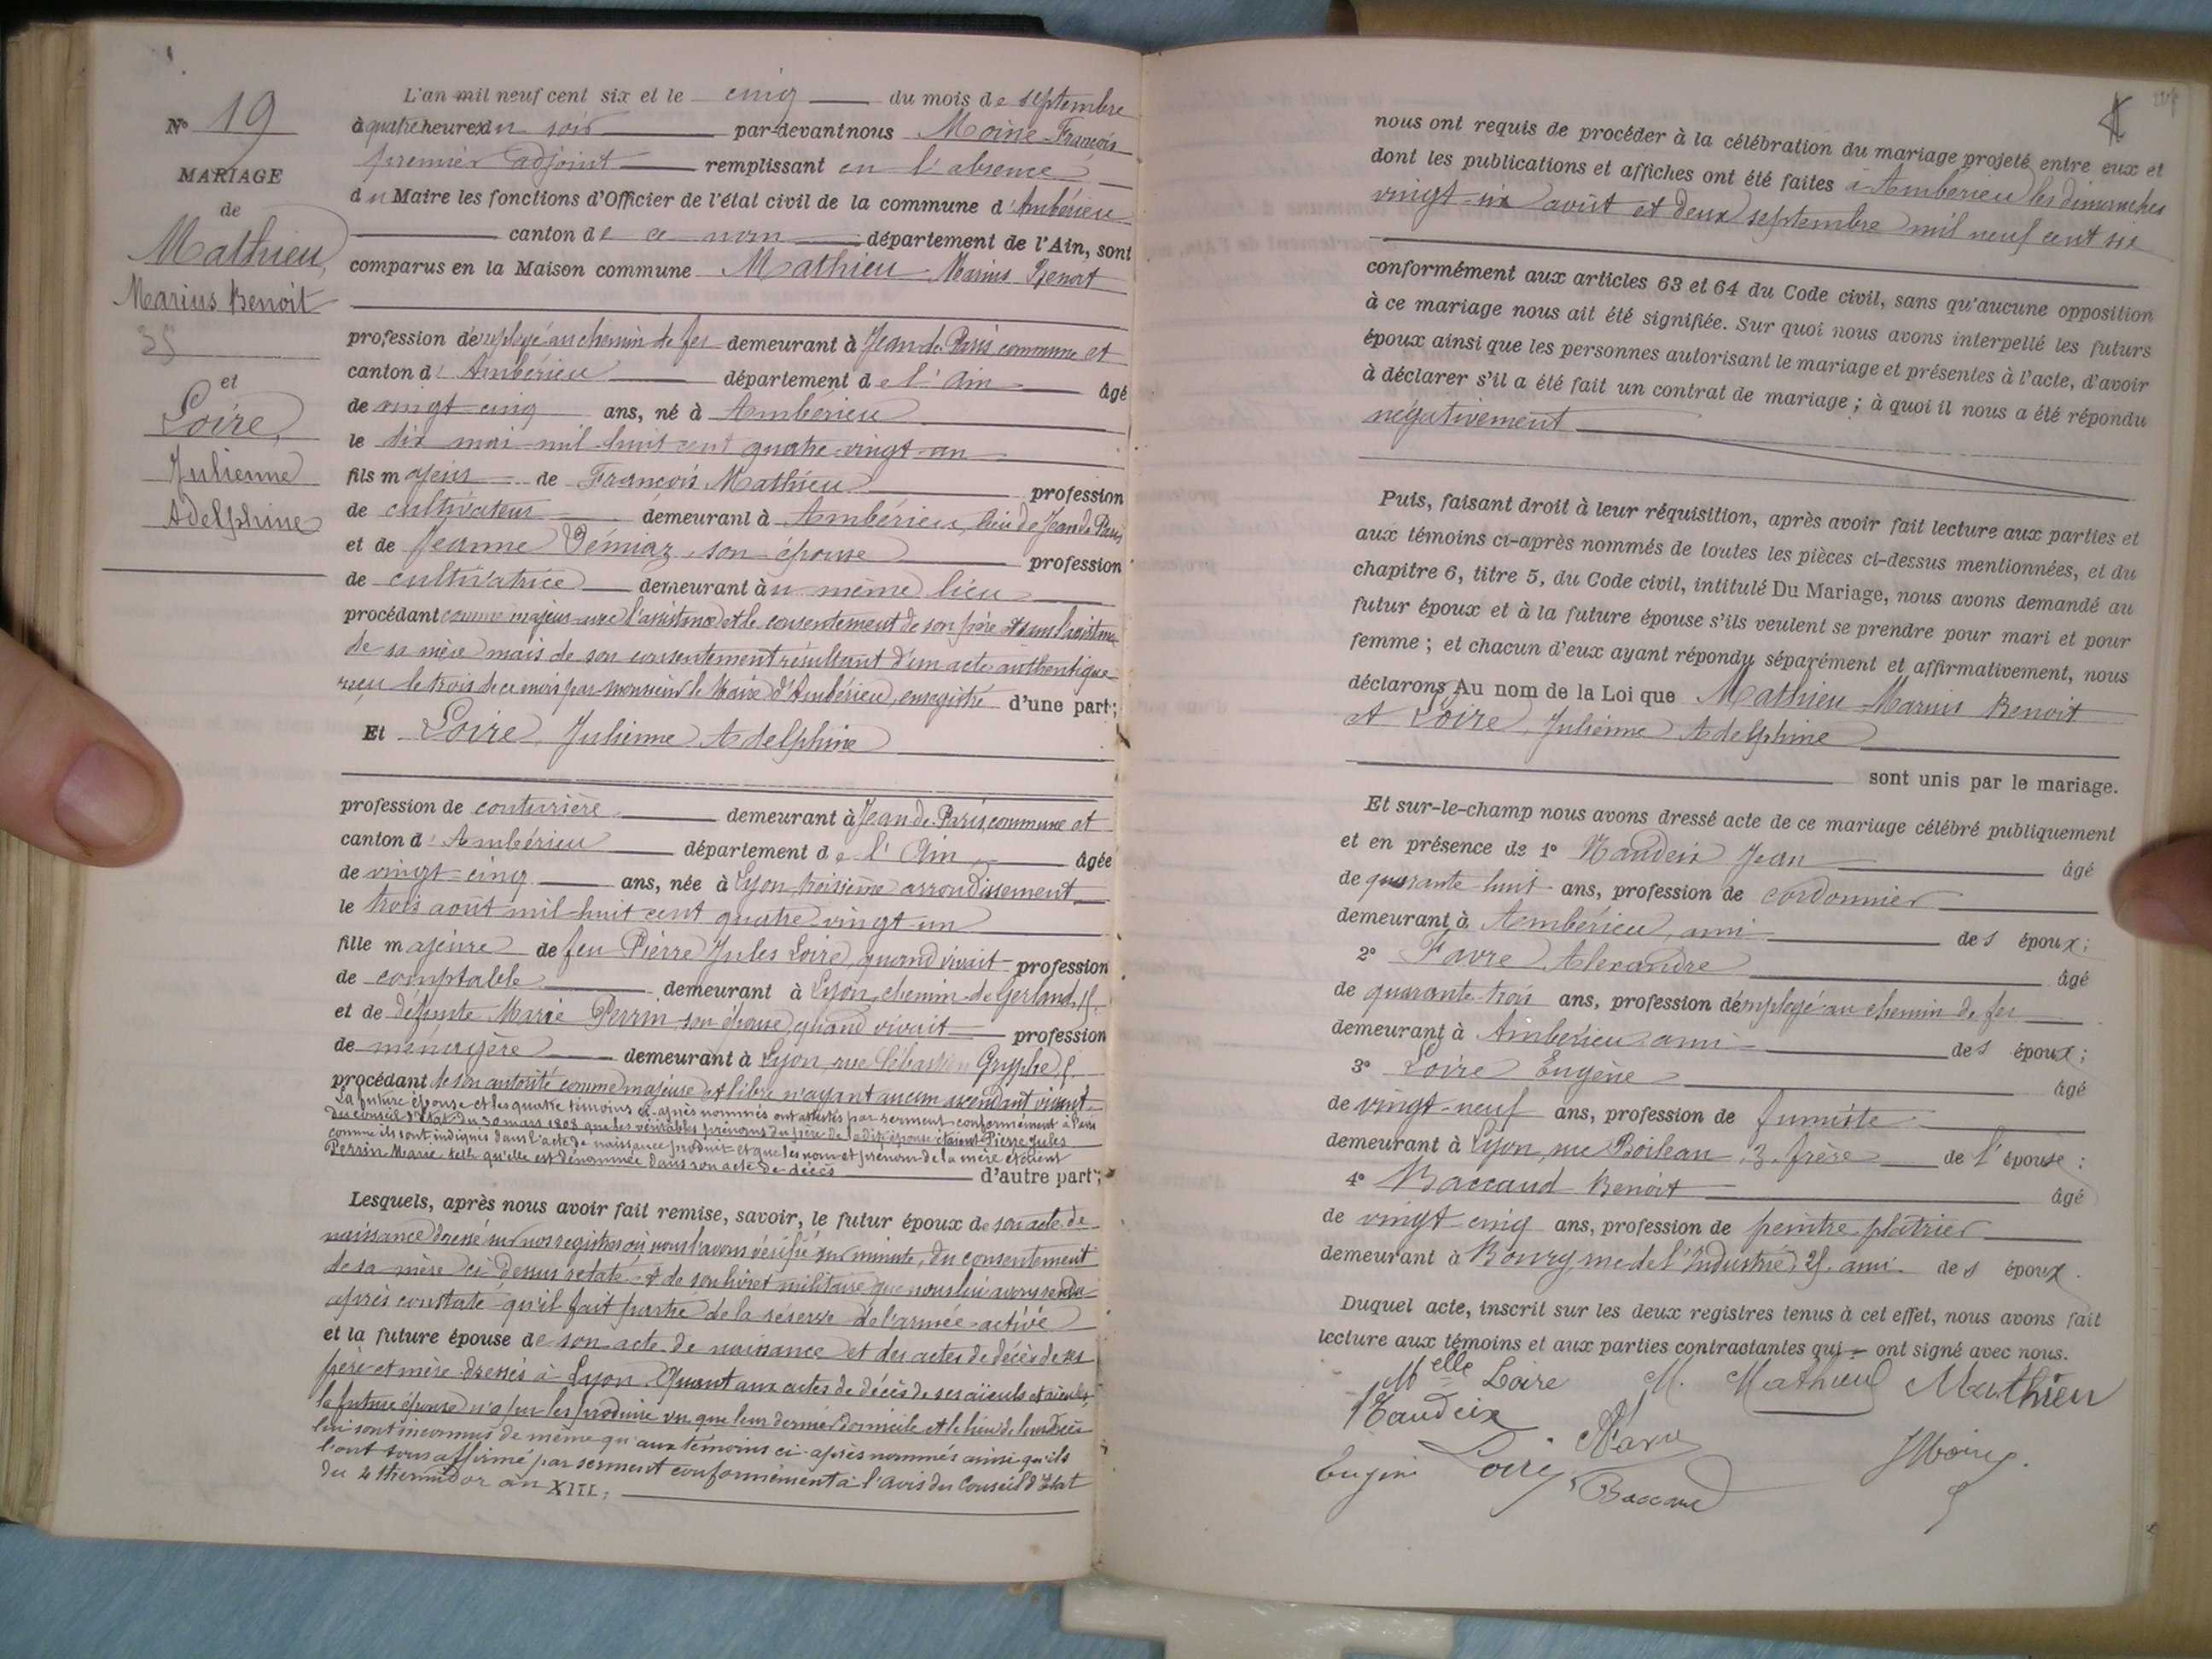 N° 19
MARIAGE
de
Mathieu,
Marius Benoit
35
et
Loire,
Julienne
Adelphine
L'an mil neuf cent six et le cinq du mois de septembre
à quatre heures du soir par-devant nous Moine François
premier adjoint remplissant en l'absence
du Maire les fonctions d'Officier de l'état civil de la commune d'Ambérieu
canton de ce nom département de l'Ain, sont
comparus en la Maison commune Mathieu Marius Benoit
profession d'employé au chemin de fer demeurant à Jean de Paris commune et
canton d'Ambérieu département de l'Ain âgé
de vingt cinq ans, né à Ambérieu
le dix mai mil huit cent quatre-vingt-un
fils majeur de François Mathieu profession
de cultivateur demeurant à Ambérieu, lieu de Jean de Paris
et de Jeanne son épouse profession
de cultivatrice demeurant au même lieu
procédant comme majeur avec l'assistance et le consentement de son père et sans l'assistance
de sa mère mais de son consentement résultant d'un acte authentique
reçu le trois de ce mois par monsieur le Maire d'Ambérieu, enregistré d'une part;
Et Loire, Julienne Adelphine
profession de couturière demeurant à Jean de Paris, commune et
canton d'Ambérieu département de l'Ain âgée
de vingt-cinq ans, née à Lyon troisième arrondissement
le trois août mil-huit cent quatre vingt-un
fille majeure de feu Pierre Jules Loire, quand vivait profession
de comptable demeurant à Lyon, chemin de Gerland,
et de défunte Marie Perrin son épouse, quand vivait profession
de ménagère demeurant à Lyon, rue Sébastien Gryphe,
procédant de son autorité comme majeure et libre n'ayant aucun ascendant vivant.
La future épouse et les quatre témoins ci-après nommés ont attesté par serment conformément à l'avis
du conseil d'Etat du 30 mars 1808 que les véritables prénoms du père de la dite épouse étaient Pierre Jules
comme ils sont indiqués dans l'acte de naissance produit et que les nom et prénom de la mère étaient
Perrin Marie telle qu'elle est dénommée dans son acte de décès d'autre part;
Lesquels, après nous avoir fait remise, savoir, le futur époux de son acte de
naissance dressé sur nos registres où nous l'avons vérifié sur minute, du consentement
de sa mère ci-dessus relaté et de son livret militaire que nous lui avons rendu
après constaté qu'il fait partie de la réserve de l'armée active
et la future épouse de son acte de naissance et des actes de décès de ses
père et mère dressés à Lyon. Quant aux actes de décès de ses aïeuls et aïeules,
la future épouse n'a pu les produire vu que leur dernier domicile et le lieu de leur décès
lui sont inconnus de même qu'aux témoins ci-après nommés ainsi qu'ils
l'ont tous affirmé par serment conformément à l'avis du Conseil d'Etat
du 4 thermidor an XIII;
nous ont requis de procéder à la célébration du mariage projeté entre eux et
dont les publications et affiches ont été faites à Ambérieu les dimanches
vingt-six août et deux septembre mil neuf cent six
conformément aux articles 63 et 64 du Code civil, sans qu'aucune opposition
à ce mariage nous ait été signifiée. Sur quoi nous avons interpellé les futurs
époux ainsi que les personnes autorisant le mariage et présentes à l'acte, d'avoir
à déclarer s'il a été fait un contrat de mariage ; à quoi il nous a été répondu
négativement
Puis, faisant droit à leur réquisition, après avoir fait lecture aux parties et
aux témoins ci-après nommés de toutes les pièces ci-dessus mentionnées, et du
chapitre 6, titre 5, du Code civil, intitulé Du Mariage, nous avons demandé au
futur époux et à la future épouse s'ils veulent se prendre pour mari et pour
femme ; et chacun d'eux ayant répondu séparément et affirmativement, nous
déclarons Au nom de la Loi que Mathieu Marius Benoit
et Loire, Julienne Adelphine
sont unis par le mariage.
Et sur-le-champ nous avons dressé acte de ce mariage célébré publiquement
et en présence de 1° Naudeix Jean âgé
de quarante-huit ans, profession de cordonnier
demeurant à Ambérieu, ami des époux;
2° Favre Alexandre âgé
de quarante-trois ans, profession d'employé au chemin de fer
demeurant à Ambérieu ami des époux;
3° Loire Eugène âgé
de vingt-neuf ans, profession de fumiste
demeurant à Lyon, rue Boileau, 3, frère de l'épouse;
4° Baccaud Benoit âgé
de vingt-cinq ans, profession de peintre-plâtrier
demeurant à Bourg, rue de l'Industrie, ami des époux.
Duquel acte, inscrit sur les deux registres tenus à cet effet, nous avons fait
lecture aux témoins et aux parties contractantes qui ont signé avec nous.
Melle Loire M. Mathieu Mathieu
Naudeix Favre
Eugène Loire Baccaud FMoine